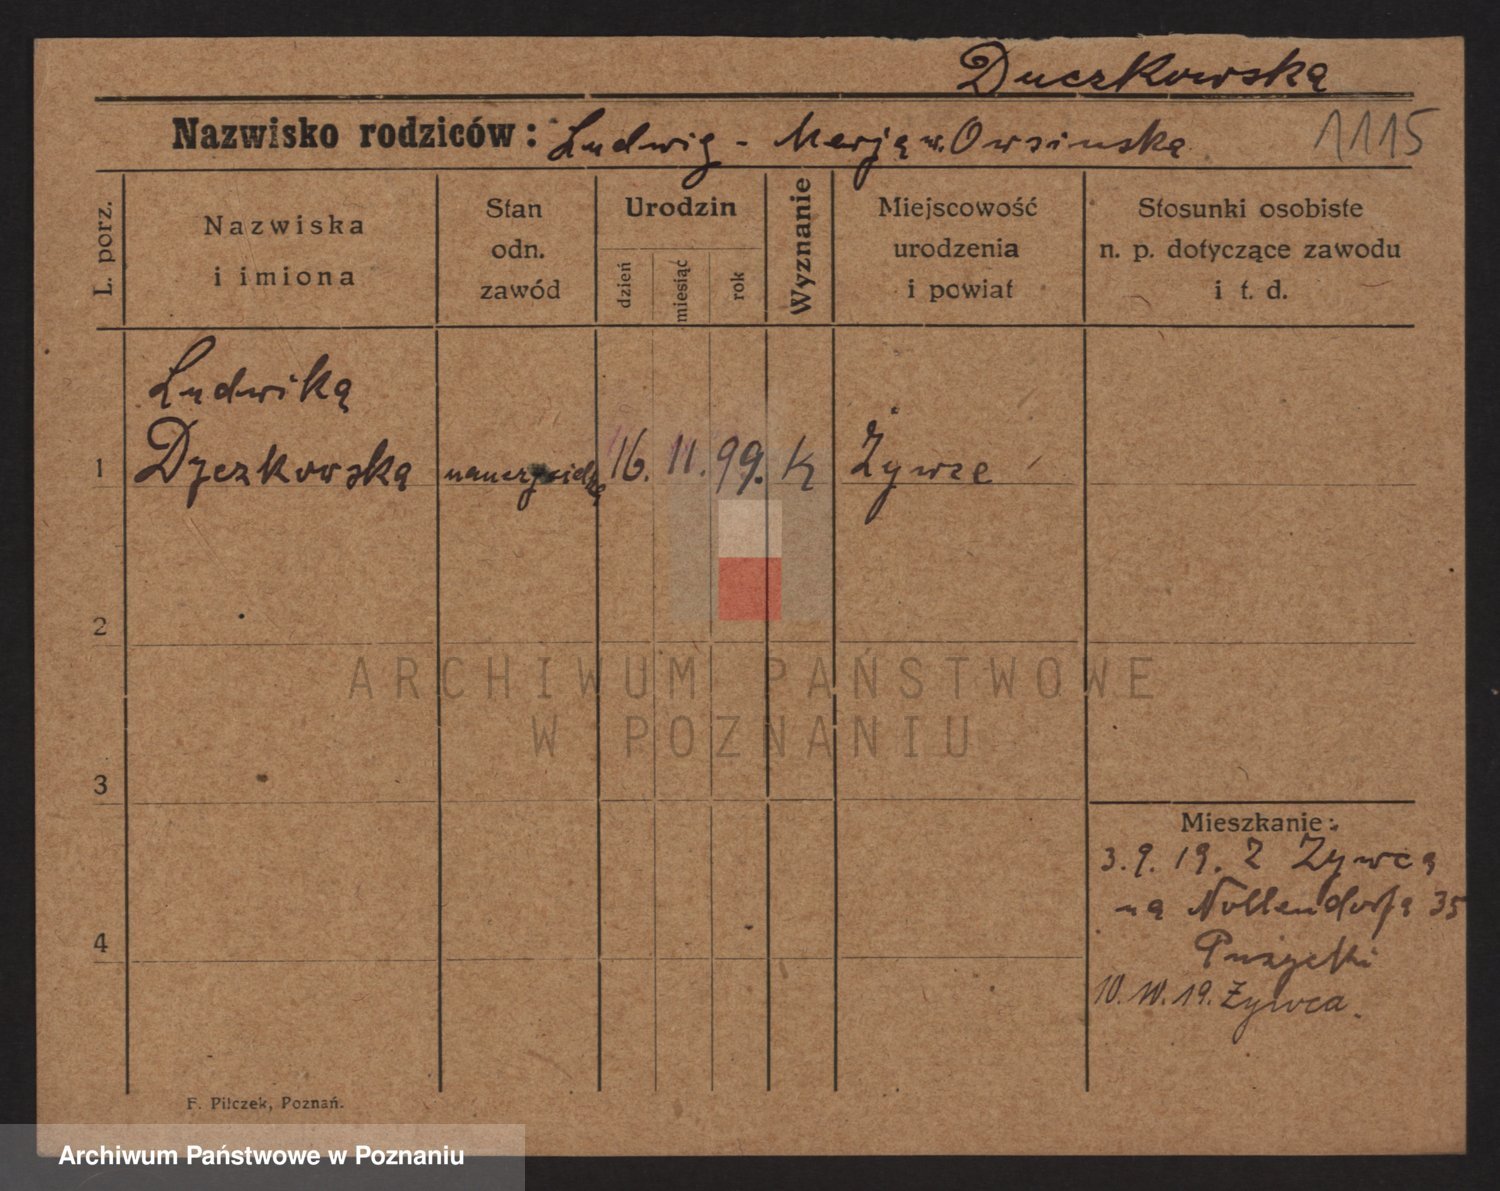 Duczkowską
Nazwisko rodziców: Ludwig - Merją w. Owsinską 1115
L. porz.
Nazwiska
i imiona
Stan
odn.
zawód
Urodzin
dzień
miesiąc
rok
Wyznanie
Miejscowość
urodzenia
i powiat
Stosunki osobiste
n. p. dotyczące zawodu
i t. d.
Ludwiką
1 Dyczkowską 16. 11. 99. k Żywze
2
3
4
ARCHIWUM PAŃSTWOWE
W POZNANIU
Mieszkanie:
3. 9. 19. Z Żywcą
ną Nollendorfą 35
10. 10. 19. Żywca.
F. Pilczek, Poznań.
Archiwum Państwowe w Poznaniu